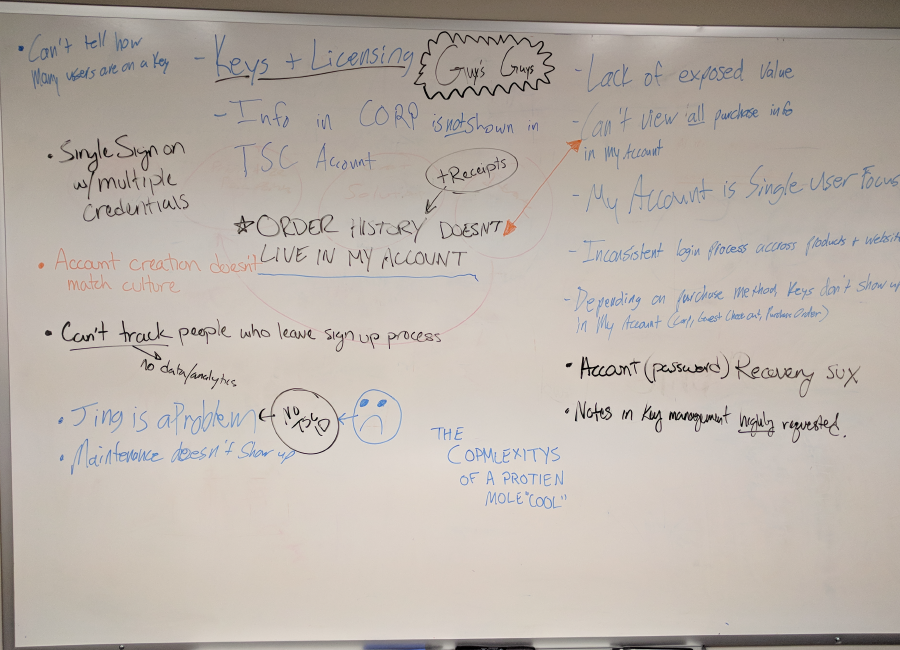 • Can't tell how
Many users are on a Key
- Keys + Licensing
Guy's Guys
- Info in CORP is not shown in
TSC Account
+Receipts
• Single Sign on
w/ multiple
Credentials
☆ ORDER HISTORY DOESN'T
LIVE IN MY ACCOUNT
• Account creation doesn't
match culture
• Can't track people who leave sign up process
No data/analytics
• Jing is a Problem
NO
TSCID
• Maintenance doesn't show up
THE
COPMLEXITYS
OF A PROTIEN
MOLE"COOL"
- Lack of exposed value
- Can't view all purchase info
in my Account
- My Account is Single-User Focus
- Inconsistent login process accross products + website
- Depending on purchase method, Keys don't show up
in My Account (Corp, Guest Checkout, Purchase Order)
• Account (password) Recovery SUX
• Notes in Key management highly requested.